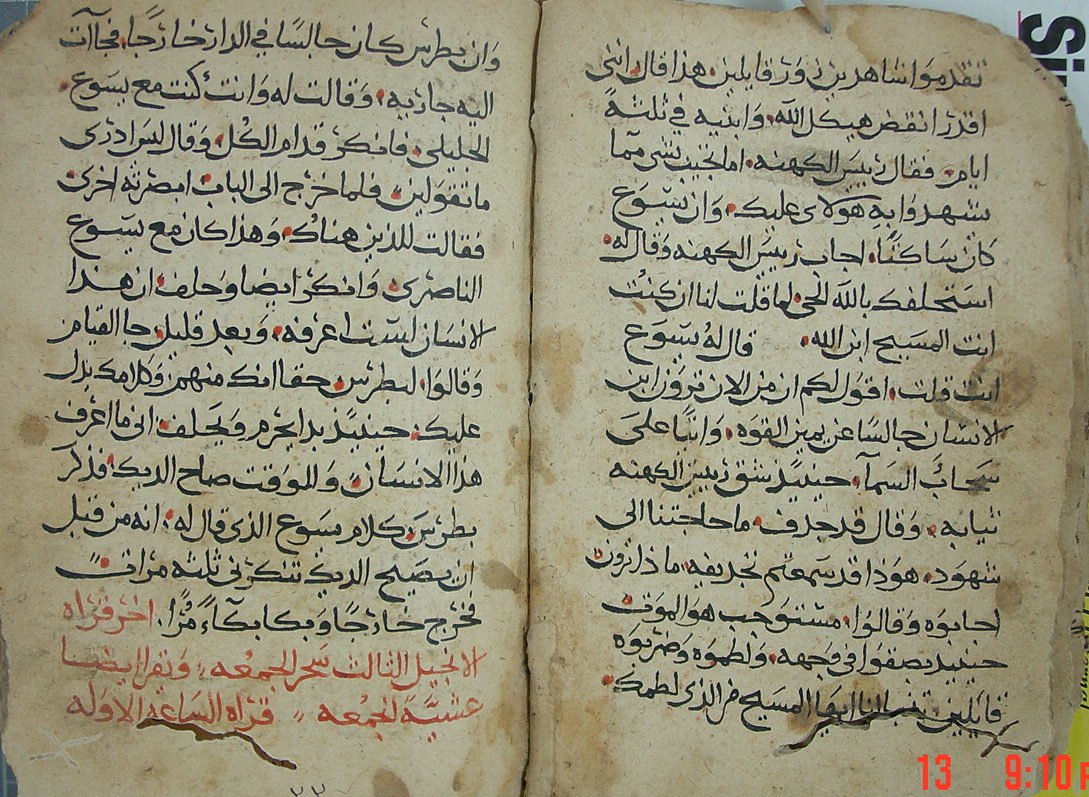 تقدموا شاهدين زور قايلين. هذا قال انني
اقدر انقض هيكل الله. وابنيه في ثلثة
ايام. فقال رييس الكهنه. اما تجيب بشي مما
يشهدوا به هولاى عليك. وان يسوع
كان ساكتًا. اجاب رييس الكهنه وقال له.
استحلفك بالله الحي. لما قلت لنا ان كنت
انت المسيح ابن الله. قال له يسوع
انت قلت. اقول لكم ان من الان ترون ابن
الانسان جالسا عن يمين القوه. واتيًا على
سحاب السمآ. حينيد شق رييس الكهنه
ثيابه. وقال قد جدف. ما حاجتنا الى
شهود. هوذا قد سمعتم تجديفه. ماذا ترون
اجابوه وقالوا. مستوجب هو الموت
حينيد بصقوا في وجهه. ولطموه وضربوه
قايلين تنبا لنا ايها المسيح من الذي لطمك.
وان بطرس كان جالسًا في الدار خارجًا. فجآت
اليه جاريه. وقالت له وانت كنت مع يسوع
الجليلي. فانكر قدام الكل. وقال لس ادرى
ما تقولين. فلما خرج الى الباب ابصرته اخرى
فقالت للذين هناك. وهذا كان مع يسوع
الناصرى. وانكر ايضا وحلف. ان هذا
الانسان لست اعرفه. وبعد قليل جا القيام
وقالوا. لبطرس. حقا انك منهم. وكلامك يدل
عليك. حينيد بدا يحرم ويحلف. انى ما اعرف
هذا الانسان. وللوقت صاح الديك. فذكر
بطرس كلام يسوع الذى قال له. انه من قبل
ان يصيح الديك تنكرنى ثلثه مرات.
فخرج خارجًا وبكا بكآءً مرًا. اخر قراه
الانجيل الثالث سحر الجمعه. ويقرا ايضا
عشية الجمعه قراه الساعة الاوله
٢٢
Si
13 9:10 P